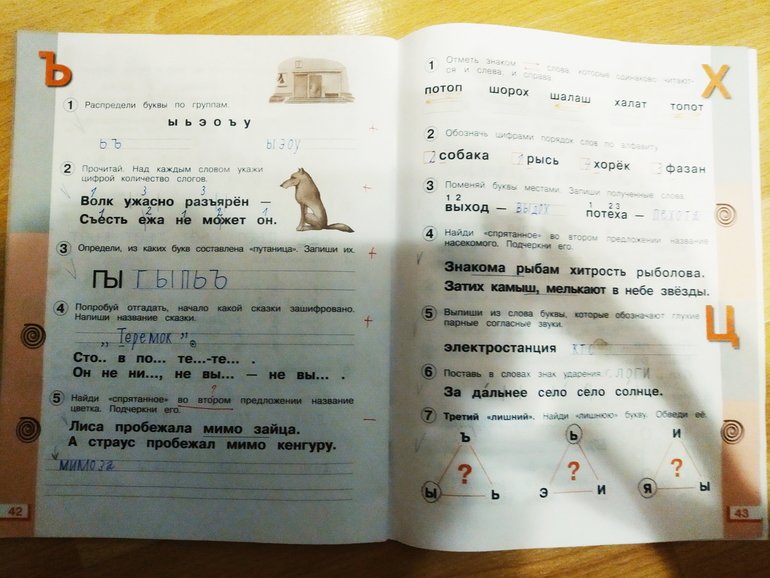 Ъ
1 Распредели буквы по группам.
ы ь э о ъ у
ьъ ыэоу
2 Прочитай. Над каждым словом укажи
цифрой количество слогов.
1 3 3
Волк ужасно разъярён —
1 2 1 2 1
Съесть ежа не может он.
3 Определи, из каких букв составлена «путаница». Запиши их.
ГЫПЬЪ
4 Попробуй отгадать, начало какой сказки зашифровано.
Напиши название сказки.
„Теремок"
Сто.. в по... те...-те... .
Он не ни..., не вы... — не вы... .
5 Найди «спрятанное» во втором предложении название
цветка. Подчеркни его.
Лиса пробежала мимо зайца.
А страус пробежал мимо кенгуру.
мимоза
42
Х
1 Отметь знаком слова, которые одинаково читают-
ся и слева, и справа.
потоп шорох шалаш халат топот
2 Обозначь цифрами порядок слов по алфавиту.
2 собака 1 рысь хорёк 3 фазан
3 Поменяй буквы местами. Запиши полученные слова.
1 2 1 2 3
выход — вдох потеха — пехота
4 Найди «спрятанное» во втором предложении название
насекомого. Подчеркни его.
Знакома рыбам хитрость рыболова.
Затих камыш, мелькают в небе звёзды.
Ц
5 Выпиши из слова буквы, которые обозначают глухие
парные согласные звуки.
электростанция ктс
6 Поставь в словах знак ударения. слоги
За да́льнее село село солнце.
7 Третий «лишний». Найди «лишнюю» букву. Обведи её.
Ъ Ь И
? ? ?
Ы Ь Э И Я Ы
43